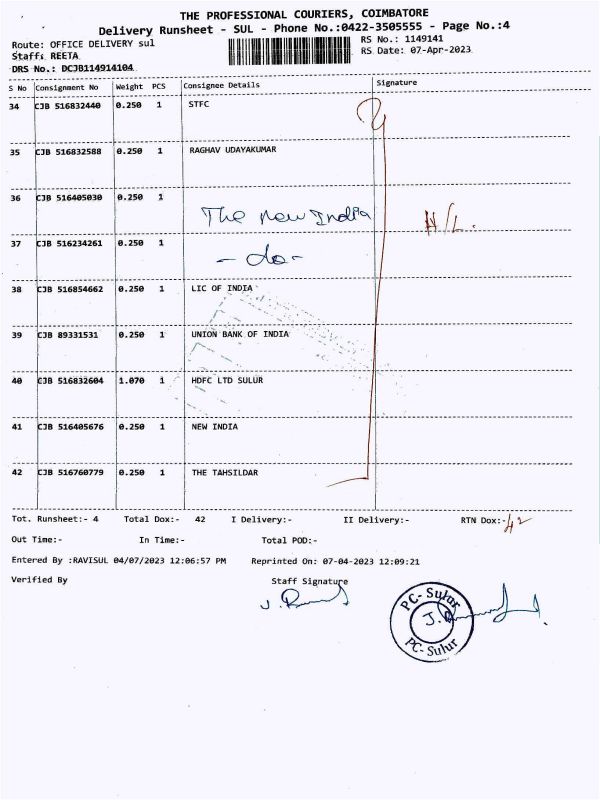 THE PROFESSIONAL COURIERS, COIMBATORE
Delivery Runsheet - SUL - Phone No.:0422-3505555 - Page No.:4
Route: OFFICE DELIVERY sul
RS No.: 1149141
Staff: REETA
RS Date: 07-Apr-2023
DRS No.: DCJB114914104
S No Consignment No Weight PCS Consignee Details Signature
34 CJB 516832440 0.250 1 STFC
35 CJB 516832588 0.250 1 RAGHAV UDAYAKUMAR
36 CJB 516405030 0.250 1 The new India H/L.
37 CJB 516234261 0.250 1 - do -
38 CJB 516854662 0.250 1 LIC OF INDIA
39 CJB 89331531 0.250 1 UNION BANK OF INDIA
40 CJB 516832604 1.070 1 HDFC LTD SULUR
41 CJB 516405676 0.250 1 NEW INDIA
42 CJB 516760779 0.250 1 THE TAHSILDAR
Tot. Runsheet:- 4 Total Dox:- 42 I Delivery:- II Delivery:- RTN Dox:- 42
Out Time:- In Time:- Total POD:-
Entered By :RAVISUL 04/07/2023 12:06:57 PM Reprinted On: 07-04-2023 12:09:21
Verified By Staff Signature
PC- Sulur
PC- Sulur